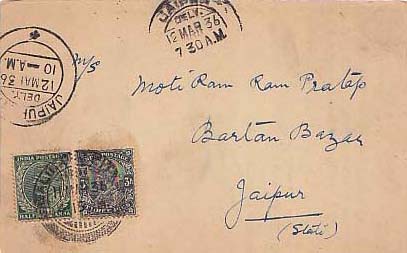 JAIPUR
DELY.
12 MAR 36
7 30 A.M
JAIPUR
DELY.
12 MAR 36
10 — A.M.
M/S
Moti Ram Ram Pratap
Bartan Bazar
Jaipur
(State)
INDIA POSTAGE
HALF ANNA
POSTAGE